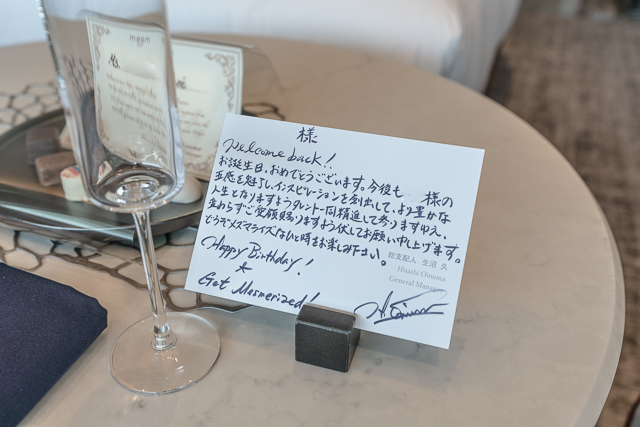 様
Welcome back!!
お誕生日、おめでとうございます。今後も 様の
五感を魅了し、インスピレーションを創出して、より豊かな
人生となりますようタレント一同精進して参ります故、
変わらずご愛顧賜りますよう伏してお願い申し上げます。
どうぞ"メズマライズ"なひと時をお楽しみ下さい。
総支配人 生沼 久
Hisashi Oinuma
General Manager
Happy Birthday!
Get Mesmerized!